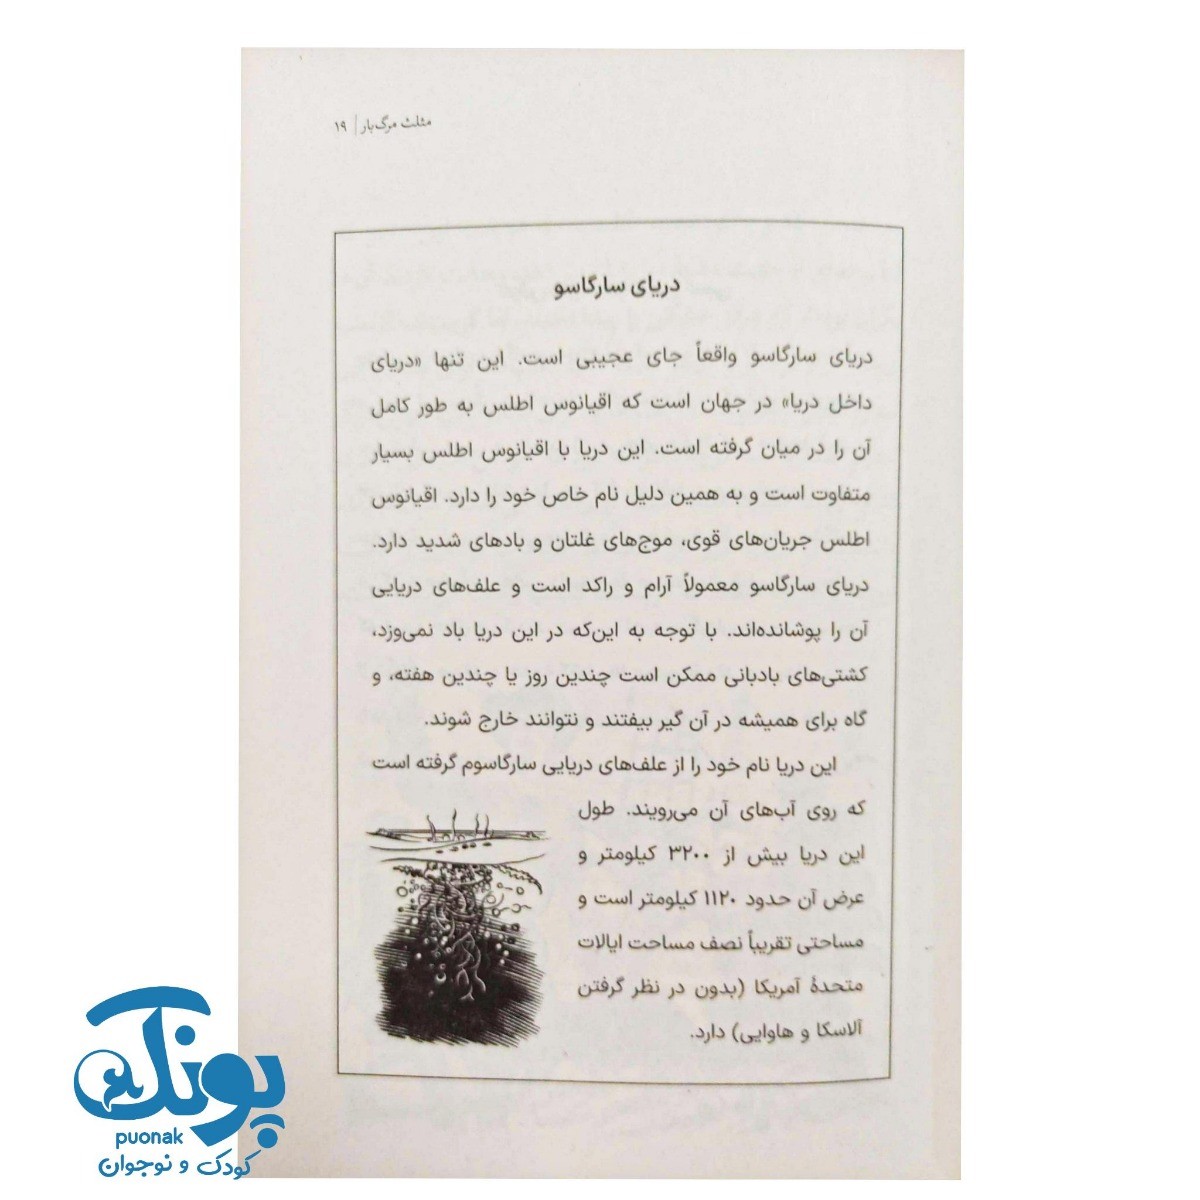 مثلث مرگ‌بار | ۱۹
دریای سارگاسو
دریای سارگاسو واقعاً جای عجیبی است. این تنها «دریای
داخل دریا» در جهان است که اقیانوس اطلس به طور کامل
آن را در میان گرفته است. این دریا با اقیانوس اطلس بسیار
متفاوت است و به همین دلیل نام خاص خود را دارد. اقیانوس
اطلس جریان‌های قوی، موج‌های غلتان و بادهای شدید دارد.
دریای سارگاسو معمولاً آرام و راکد است و علف‌های دریایی
آن را پوشانده‌اند. با توجه به این‌که در این دریا باد نمی‌وزد،
کشتی‌های بادبانی ممکن است چندین روز یا چندین هفته، و
گاه برای همیشه در آن گیر بیفتند و نتوانند خارج شوند.
این دریا نام خود را از علف‌های دریایی سارگاسوم گرفته است
که روی آب‌های آن می‌رویند. طول
این دریا بیش از ۳۲۰۰ کیلومتر و
عرض آن حدود ۱۱۲۰ کیلومتر است و
مساحتی تقریباً نصف مساحت ایالات
متحدهٔ آمریکا (بدون در نظر گرفتن
آلاسکا و هاوایی) دارد.
پونک
puonak
کودک و نوجوان